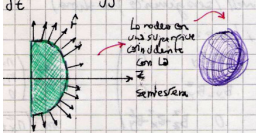 dt
Lo rodeo con
una superficie
coincidente
con la
z
semiesfera